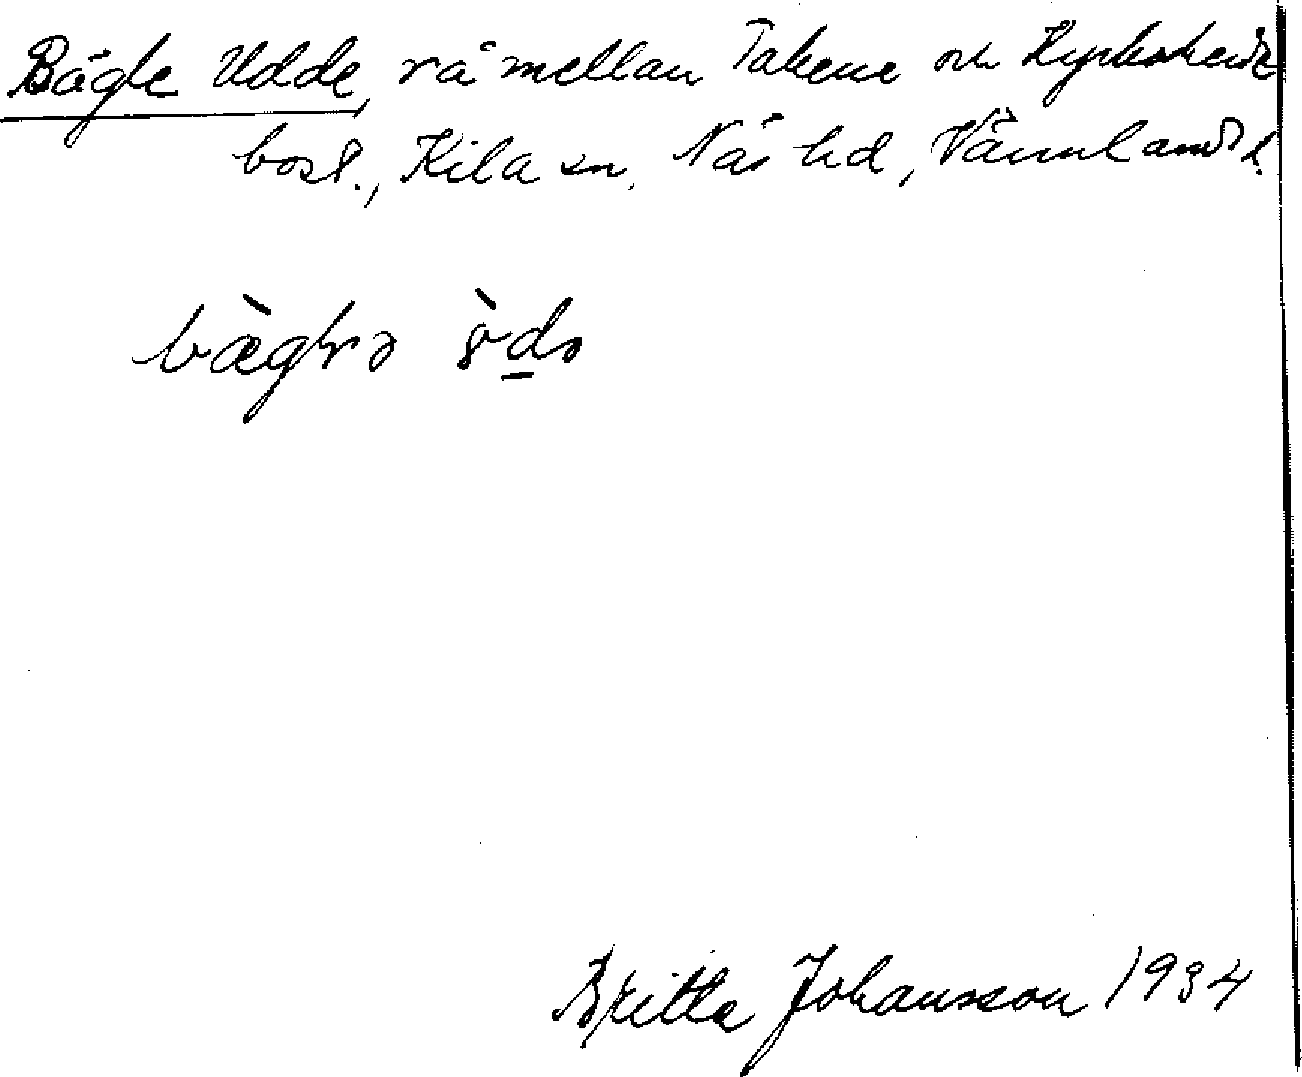 Bågle Udde, rå mellan Takene och Kyrkoheide
bost., Kila sn, Näs hd, Värmlands l.
bæ̀gɫə
Britta Johansson 1934